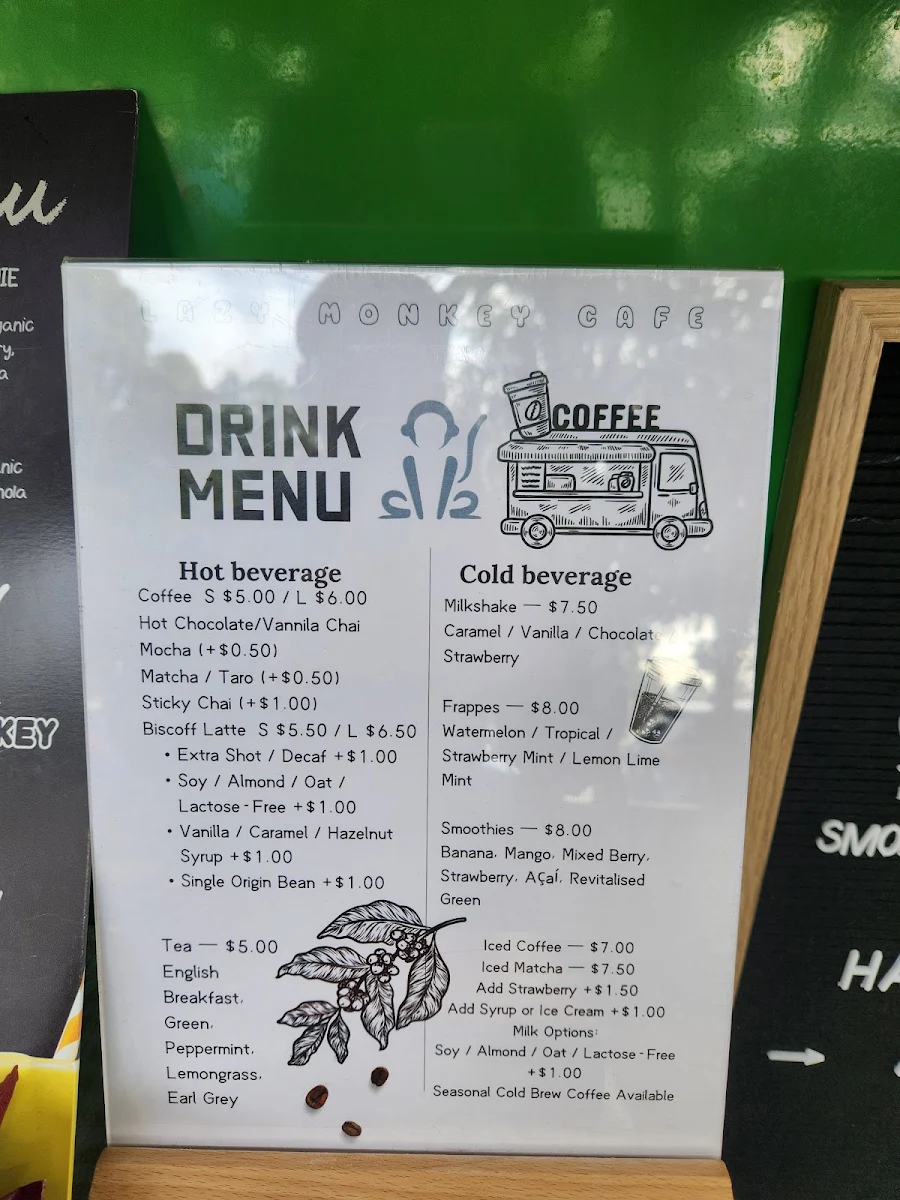 LAZY MONKEY CAFE
DRINK
MENU
COFFEE
Hot beverage
Coffee S $5.00 / L $6.00
Hot Chocolate/Vannila Chai
Mocha (+$0.50)
Matcha / Taro (+$0.50)
Sticky Chai (+$1.00)
Biscoff Latte S $5.50 / L $6.50
• Extra Shot / Decaf +$1.00
• Soy / Almond / Oat /
Lactose-Free +$1.00
• Vanilla / Caramel / Hazelnut
Syrup +$1.00
• Single Origin Bean +$1.00
Tea — $5.00
English
Breakfast,
Green,
Peppermint,
Lemongrass,
Earl Grey
Cold beverage
Milkshake — $7.50
Caramel / Vanilla / Chocolate /
Strawberry
Frappes — $8.00
Watermelon / Tropical /
Strawberry Mint / Lemon Lime
Mint
Smoothies — $8.00
Banana, Mango, Mixed Berry,
Strawberry, Açaí, Revitalised
Green
Iced Coffee — $7.00
Iced Matcha — $7.50
Add Strawberry +$1.50
Add Syrup or Ice Cream +$1.00
Milk Options:
Soy / Almond / Oat / Lactose-Free
+$1.00
Seasonal Cold Brew Coffee Available